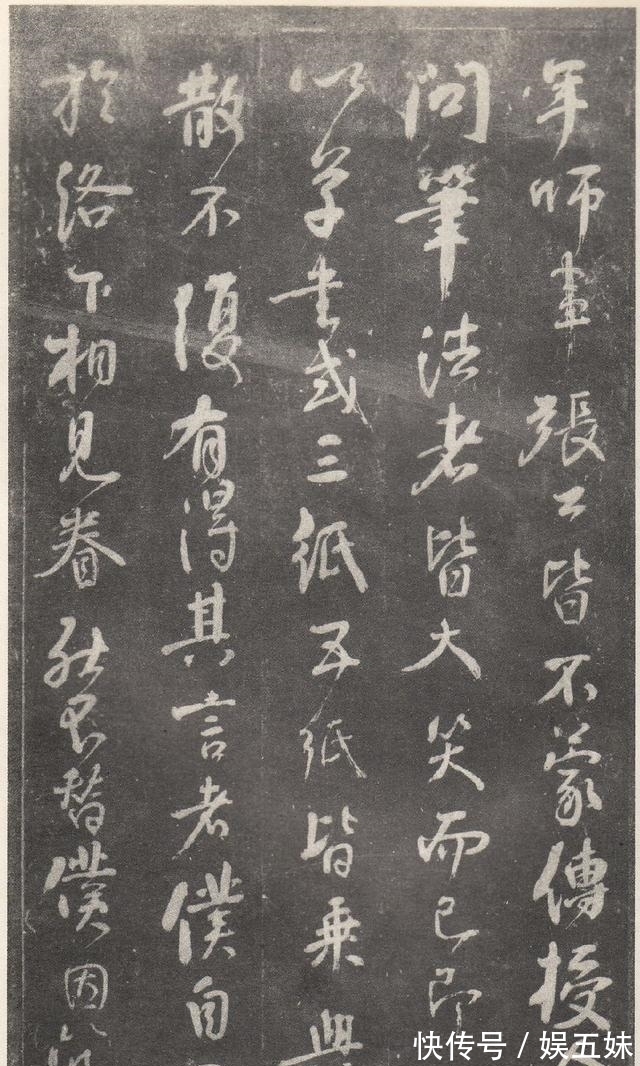 年師盡張公皆不蒙傳授
問筆法者皆大笑而已即
以草書或三紙五紙皆乘興
散不復有得其言者僕自
於洛下相見眷然不替僕因
快传号 / 娱五妹